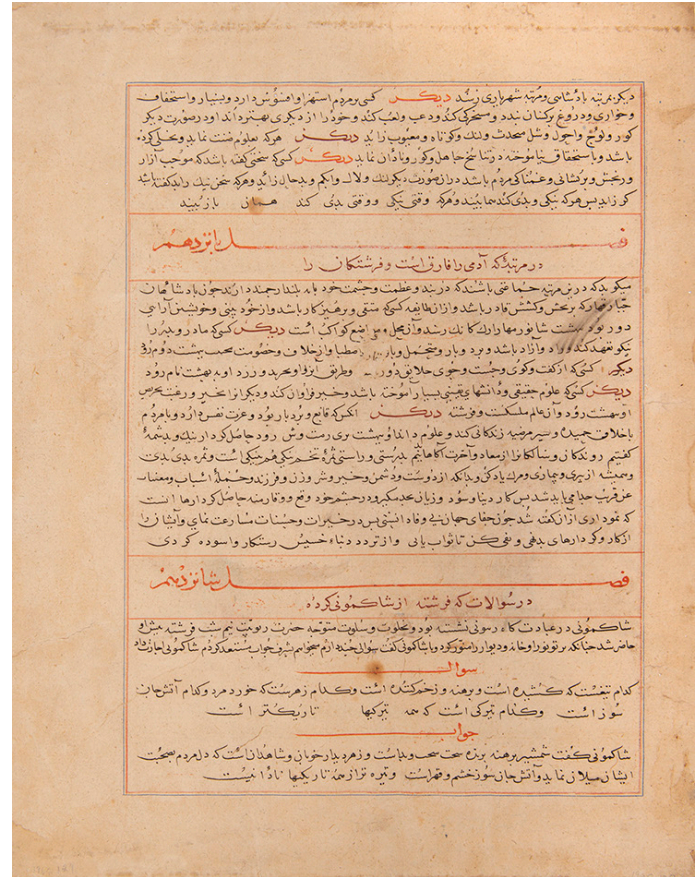 دیکر بمرتبه بادشاسی و مرتبه شهریاری رسند دیکر کسی بر مردم استهزا و افسوس دارد و بسیار و استخفاف
و خواری و دروغ بر کسان بندد و مسخرکی کند و دعب و لعب کند و خود را از دیکری بهتر داند او در صورت دیکر
کور و لوج و احول و شل محدث و لنک و کوتاه و معیوب زاید دیکر هرکه بعلوم ضنت نماید و بخلی کرده
باشد و باستحقاق نیاموخته در تناسخ جاهل و کور و نادان نماید دیکر کسی که سخنی کفته باشد که موجب آزار
و رنجش و پریشانی و غمناکی مردم باشد در آن صورت دیکر لنک و لال و ابکم و بدحال زاید و هرکه سخن نیک راند کفته باشد
کر زاید بس هرکه نیکی و بدی کند سما بیند و هرکه وقتی نیکی و وقتی بدی کند همان باز بیند
فصل بانزدهم
در مرتبهٔ که آدمی را فارق است و فرشتکان را
میکوید که درین مرتبه جماعتی باشند که در بند و عظمت و حشمت خود بایه بلند ارجمند دارند چون بادشاهان
جبار قهار که بر بخش و کشش قادر باشد و از ان طایفه کسی که متقی و برهیزکار باشد و از خود بینی و خویشتن آرایی
دور بود بهشت شانور مهاراک کانک رسد و آن محل و مواضع کواکب است دیکر کسی که مادر و بدر را
نیکو تعهد کند و راد و آزاد باشد و بردبار و متحمل و از خلاف و خصومت مجتنب ببهشت دوم رود
دیکر کسی که از کفت و کوی و جست و جوی خلایق دور و طریق انزوا و تجرد ورزد او به بهشت نام رود
دیکر کسی که علوم حقیقی و دانشهای یقینی بسیار آموخته باشد و خیر فراوان کند و دیکران را بخیر و رغبت
او ببهشت رود و آن عالم ملکست و فرشته دیکر آنکس که قانع و بردبار بود و عزت نفس دارد و با مردم
باخلاق حمیده و سیر مرضیه زندکانی کند و علوم داند او ببهشت رود حاصل کردار نیک و بد شمهٔ
کفتیم دوندکان و سالکان را از معاد و آخرت آکاهانیدیم بدرستی و راستی ثمرهٔ تخم نیکی هم نیکی است و ثمره بدی بدی
و سمیشه از پیری و بیماری و مرک یاد کن و بدانکه از دوست و دشمن و خیر و شر و زن و فرزند و جملهٔ اسباب و مهمات
عن قریب جدا می باید شد بس کار دنیا و سود و زیان در چشم خود وقع و قدر منه حاصل کردارها انست
که نموداری از ان کفته شد چون جفای جهان بی وفا دانستی بس در خیرات و حسنات مسارعت نمای و آنشان را
از کار و کردارهای بد نهی و نفی کن تا ثواب یابی و از تردد دنیاء خسیس رستکار و اسوده کردی
فصل شانزدهم
در سوالات که فرشته از شاکمونی کرده
شاکمونی در عبادت کاه رسونی نشسته بود و بخلوت و سلوت متوجه حضرت ربوبیت نیم شب فرشته بیش او
حاضر شد جنانکه برتو نور او خانه و دیوار را منور کرد و با شاکمونی کفت سوالی چند دارم میخواهم بشرف جواب مستسعد کردم شاکمونی اجازت داد
سوال
کدام تیغست که کشیده است و برهنه و زخم کننده است و کدام زهرست که خورد مرد و کدام آتش جان
سوز است و کدام تیرکی است که سمه تیرکیها تاریکتر است
جواب
شاکمونی کفت شمشیر برهنه برزه سخت سخن و بداست و زهر دیدار خوبان و شاهدانست که دل مردم بصحبت
ایشان میلان نماید و آتش جان سوز خشم و قهر است و تیره تر از همه تاریکیها نادانیست